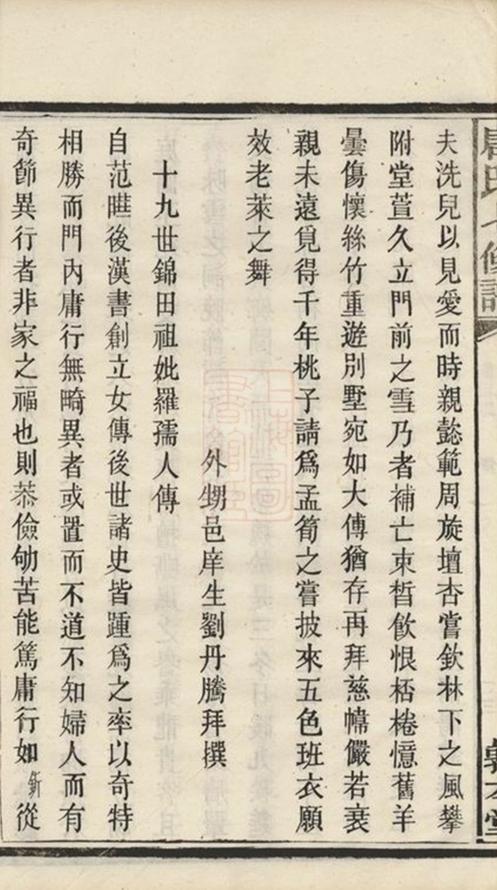 夫洗兒以見愛而時親懿範周旋壇杏嘗欽林下之風攀
附堂萱久立門前之雪乃者補亡束晳飲恨栝棬憶舊羊
曇傷懷絲竹重遊別墅宛如大傅猶存再拜慈幃儼若衰
親未遠覓得千年桃子請爲孟筍之嘗披來五色班衣願
效老萊之舞
外甥邑庠生劉丹騰拜撰
十九世錦田祖妣羅孺人傳
自范瞱後漢書創立女傳後世諸史皆踵爲之率以奇特
相勝而門內庸行無畸異者或置而不道不知婦人而有
奇節異行者非家之福也則恭儉劬苦能篤庸行如新從